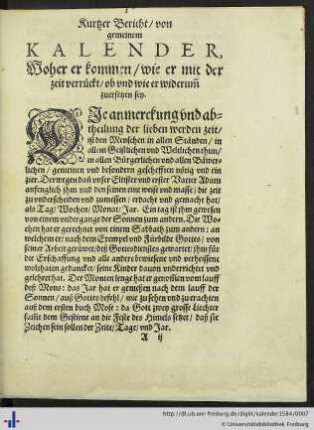 1
Kurtzer Bericht/ von
gemeinem
KALENDER,
Woher er kommen/ wie er mit der
zeit verrückt/ ob vnd wie er widerum̃
zuersetzen sey.
DIe anmerckung vnd ab-
theilung der lieben werden zeit/
ist den Menschen in allen Ständen/ in
allem Geistlichen vnd Weltlichen thun/
in allen Bürgerlichen vnd allen Bäwer-
lichen/ gemeinen vnd besondern geschefften nötig vnd ein
zier. Derwegen daß vnser Eltster vnd erster Vatter Adam
anfenglich jhm vnd den seinen eine weise vnd masse/ die zeit
zu vnderscheiden vnd zumessen/ erdacht vnd gemacht hat/
als Tag/ Wochen/ Monat/ Jar. Ein tag ist jhm gewesen
von einem vndergange der Sonnen zum andern. Die Wo-
chen hat er gerechnet von einem Sabbath zum andern: an
welchem er/ nach dem Exempel vnd Fürbilde Gottes/ von
seiner Arbeit gerüwet/ deß Gottesdienstes gewartet/ jhm für
die Erschaffung vnd alle andere bewiesene vnd verheissene
wolthaten gedancket/ seine Kinder dauon vnderrichtet vnd
gelehret hat. Der Monten lenge hat er genommen vom lauff
deß Mons: das Jar hat er gemessen nach dem lauff der
Sonnen/ auß Gottes befehl/ wie zu sehen vnd zu erachten
auß dem ersten buch Mose: da Gott zwey grosse Liechter
sampt dem Gestirne an die Feste des Himels setzet/ daß sie
Zeichen sein sollen der Zeite/ Tage/ vnd Jar.
A ij
http://dl.ub.uni-freiburg.de/diglit/kalender1584/0007
© Universitätsbibliothek Freiburg